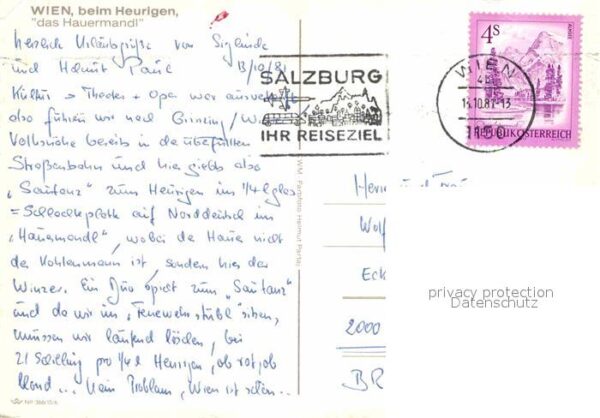 WIEN, beim Heurigen,
"das Hauermandl"
Herzlich Urlaubsgrüße von Siglinde
und Helmut Paul 13/10/81
Kultur → Theater + Oper war ausverkauft
also fuhren wir nach Grinzing/
Volksnähe bereits in der überfüllten
Straßenbahn und hier giebts also
"Sautanz" zum Heurigen im 1/4 l glas
= Schlachteplatte auf Norddeutsch im
"Hauermandl", wobei der Hauer nicht
der Kohlenmann ist, sondern hier der
Winzer. Ein Duo spielt zum "Sautanz"
und da wir im "Feuerwehrstübl" sitzen,
müssen wir laufend löschen, bei
21 Schilling pro 1/4 l Heurigen, ob rot, ob
blond... Kein Problem, Wien ist schön...
NP 388/15/A
WM Farbfoto Helmut Partaj
SALZBURG
IHR REISEZIEL
WIEN
14.10.81-13
1150
4S
REPUBLIK ÖSTERREICH
Herrn und Frau
Wolf
Eck
2000
BR
privacy protection
Datenschutz